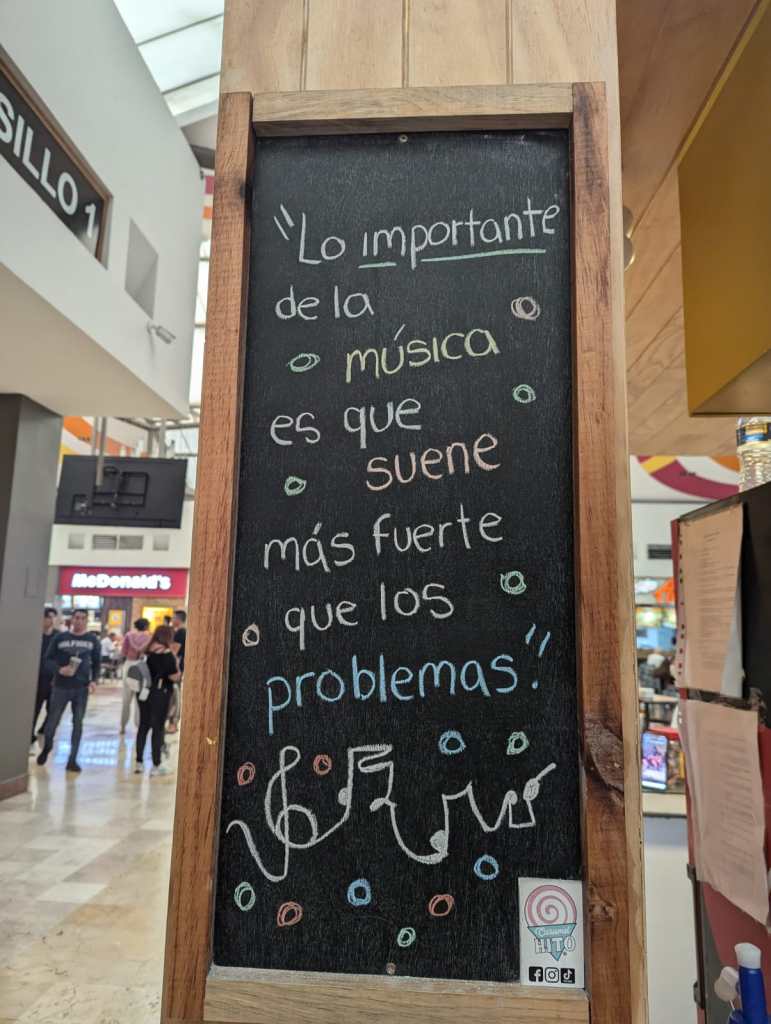 SILLO 1
"Lo importante
de la
música
es que
suene
más fuerte
que los
problemas".
McDonald's
Caramel
HITO